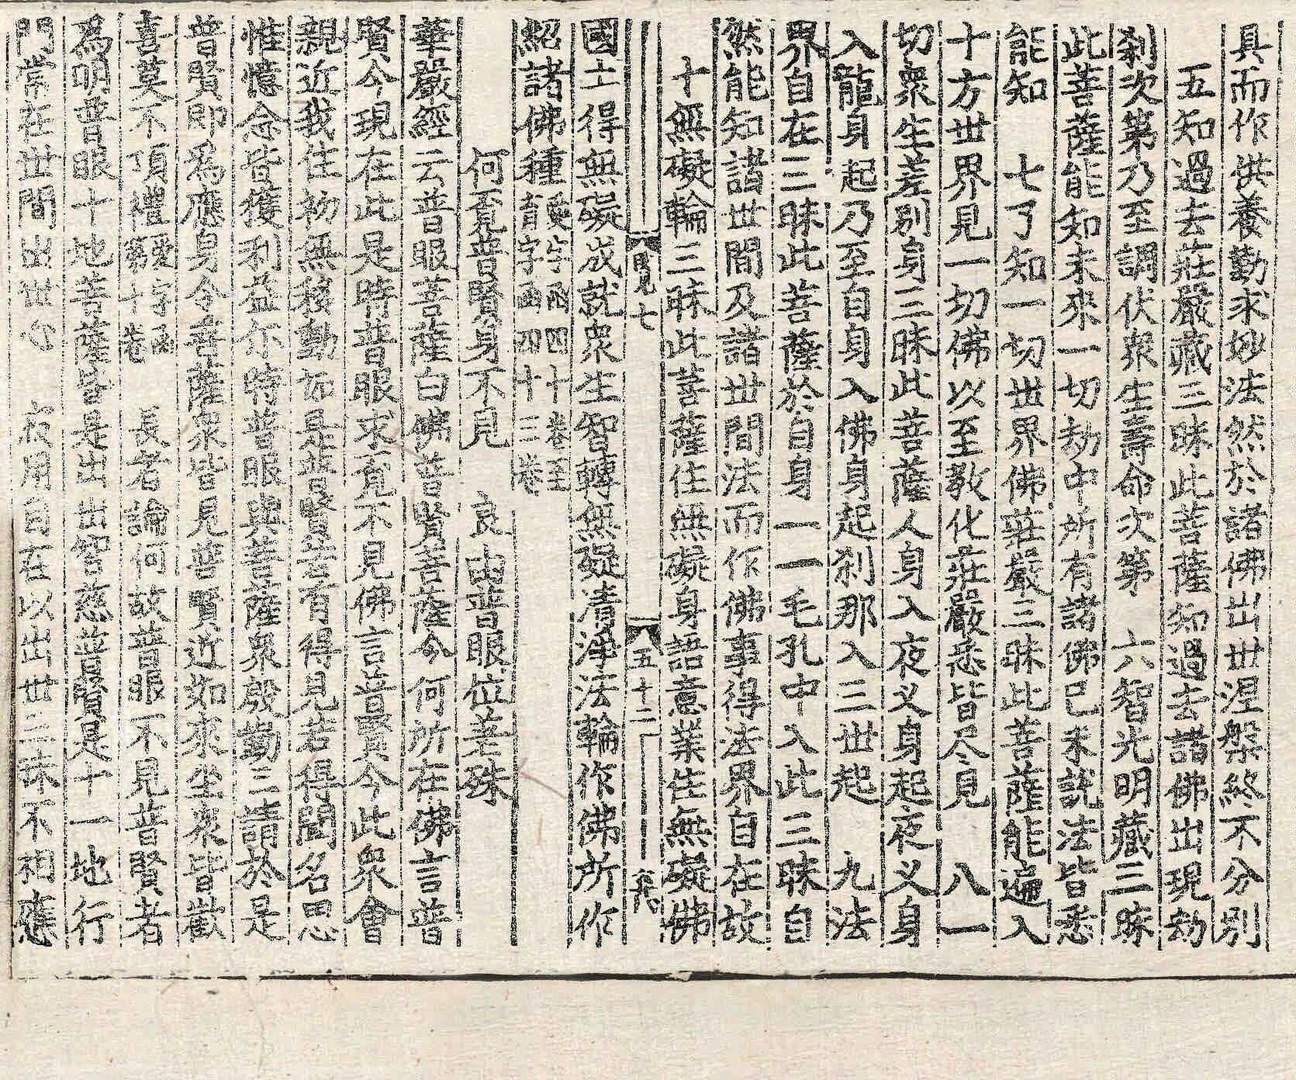 具而作供養勤求妙法然於諸佛出世涅槃終不分別
五知過去莊嚴藏三昧此菩薩知過去諸佛出現劫
刹次第乃至調伏衆生壽命次第　六智光明藏三昧
此菩薩能知未來一切劫中所有諸佛已未說法皆悉
能知　七了知一切世界佛莊嚴三昧此菩薩能遍入
十方世界見一切佛以至教化莊嚴悉皆尽見　八一
切衆生差別身三昧此菩薩人身入夜义身起夜义身
入龍身起乃至自身入佛身起刹那入三世起　九法
界自在三昧此菩薩於自身一一毛孔中入此三昧自
然能知諸世間及諸世間法而作佛事得法界自在故
十無礙輪三昧此菩薩住無礙身語意業住無礙佛
七　五十二
國土得無礙成就衆生智轉無礙清淨法輪作佛所作
紹諸佛種愛字函四十卷至育字函四十三卷
何覔普賢身不見　良由普眼位差殊
華嚴經云普眼菩薩白佛普賢菩薩今何所在佛言普
賢今現在此是時普眼求覔不見佛言普賢今此衆會
親近我住初無移動如是普賢若有得見若得聞名思
惟憶念皆獲利益尒時普眼與菩薩衆殷勤三請於是
普賢即爲應身令菩薩衆皆見普賢近如來坐衆皆歡
喜莫不頂禮愛字函第十卷　長者論何故普眼不見普賢者
爲明普眼十地菩薩皆是出出智慈普賢是十一地行
門常在世間出世心　用自在以出世三昧不相應